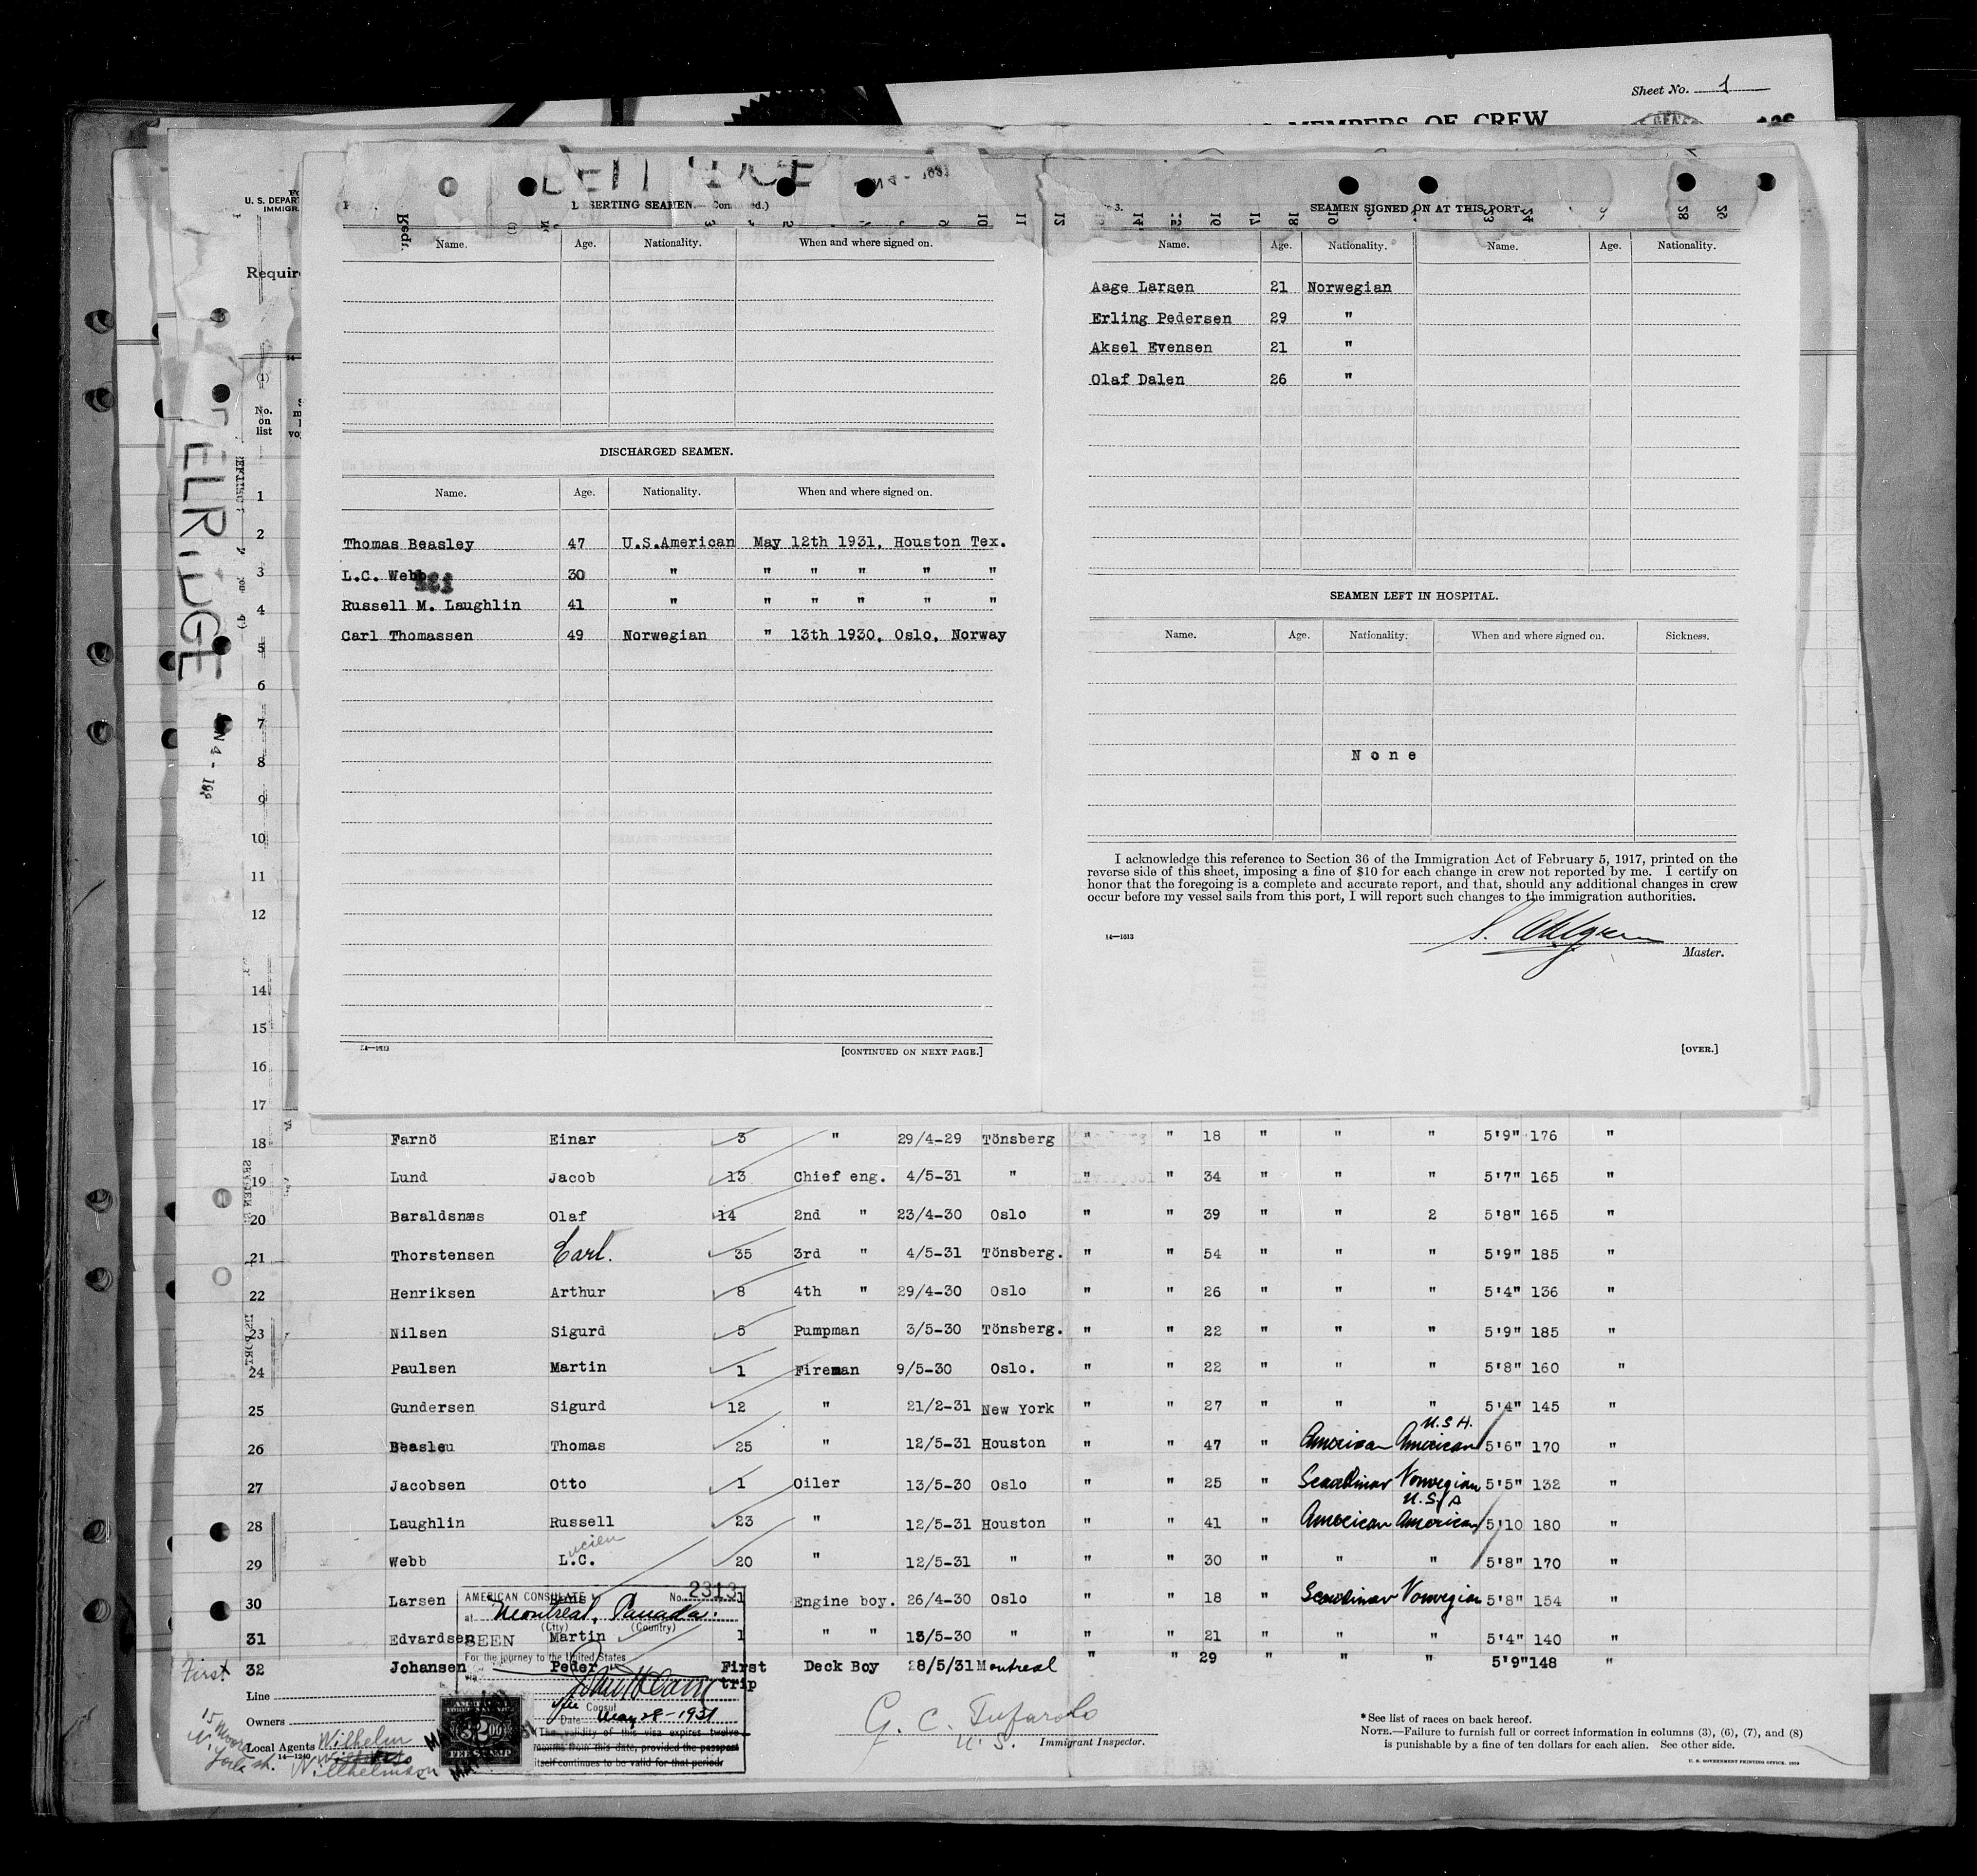 Sheet No. 1
MEMBERS OF CREW
U. S. DEPAR
IMMIGR
Requir
(1)
No. on list
DESERTING SEAMEN.—(Continued.)
Name. Age. Nationality. When and where signed on.
DISCHARGED SEAMEN.
Name. Age. Nationality. When and where signed on.
Thomas Beasley 47 U.S.American May 12th 1931, Houston Tex.
L.C. Webb 30 " " " " " "
Russell M. Laughlin 41 " " " " " "
Carl Thomassen 49 Norwegian " 13th 1930, Oslo, Norway
14—1613
[CONTINUED ON NEXT PAGE.]
SEAMEN SIGNED ON AT THIS PORT.
Name. Age. Nationality. Name. Age. Nationality.
Aage Larsen 21 Norwegian
Erling Pedersen 29 "
Aksel Evensen 21 "
Olaf Dalen 26 "
SEAMEN LEFT IN HOSPITAL.
Name. Age. Nationality. When and where signed on. Sickness.
None
I acknowledge this reference to Section 36 of the Immigration Act of February 5, 1917, printed on the
reverse side of this sheet, imposing a fine of $10 for each change in crew not reported by me. I certify on
honor that the foregoing is a complete and accurate report, and that, should any additional changes in crew
occur before my vessel sails from this port, I will report such changes to the immigration authorities.
14—1613
Master.
[OVER.]
1
2
3
4
5
6
7
8
9
10
11
12
14
15
16
17
18 Farnö Einar 3 " 29/4-29 Tönsberg " " 18 " " " 5'9" 176 "
19 Lund Jacob 13 Chief eng. 4/5-31 " " " 34 " " " 5'7" 165 "
20 Baraldsnæs Olaf 14 2nd " 23/4-30 Oslo " " 39 " " 2 5'8" 165 "
21 Thorstensen Carl. 35 3rd " 4/5-31 Tönsberg. " " 54 " " " 5'9" 185 "
22 Henriksen Arthur 8 4th " 29/4-30 Oslo " " 26 " " " 5'4" 136 "
23 Nilsen Sigurd 5 Pumpman 3/5-30 Tönsberg. " " 22 " " " 5'9" 185 "
24 Paulsen Martin 1 Fireman 9/5-30 Oslo. " " 22 " " " 5'8" 160 "
25 Gundersen Sigurd 12 " 21/2-31 New York " " 27 " " " 5'4" 145 "
26 Beasleu Thomas 25 " 12/5-31 Houston " " 47 " American U.S A. American 5'6" 170 "
27 Jacobsen Otto 1 Oiler 13/5-30 Oslo " " 25 " Scandinav Norwegian 5'5" 132 "
28 Laughlin Russell 23 " 12/5-31 Houston " " 41 " American U.S.A American 5'10 180 "
29 Webb L.ucien C. 20 " 12/5-31 " " " 30 " " " 5'8" 170 "
30 Larsen Hans 1 Engine boy. 26/4-30 Oslo " " 18 " Scandinav Norwegian 5'8" 154 "
31 Edvardsen Martin 1 " " 13/5-30 " " " 21 " " " 5'4" 140 "
First 32 Johansen Peder First trip Deck Boy 28/5/31 Montreal " " 29 " " " 5'9" 148 "
AMERICAN CONSULATE No. 2313
at Montreal, Canada.
(City) (Country)
SEEN
For the journey to the United States
Vice Consul
Date May 28-1931
(The validity of this visa expires twelve
months from this date, provided the passport
itself continues to be valid for that period)
$2.00
FEE STAMP
Line
Owners
Local Agents Wilhelm
14—1240
Wilhelmsen
G. C. Tufarolo
U. S. Immigrant Inspector.
*See list of races on back hereof.
NOTE.—Failure to furnish full or correct information in columns (3), (6), (7), and (8)
is punishable by a fine of ten dollars for each alien. See other side.
U. S. GOVERNMENT PRINTING OFFICE. 1929